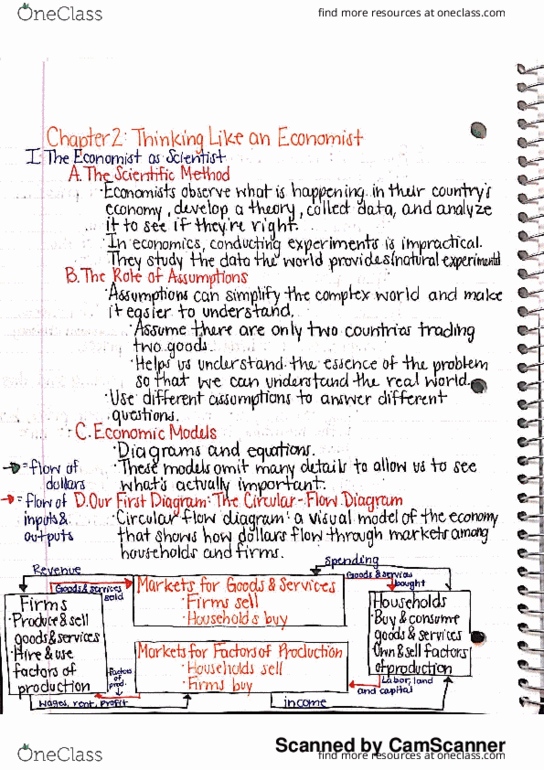 OneClass
find more resources at oneclass.com
Chapter 2: Thinking Like an Economist
I. The Economist as Scientist
A. The Scientific Method
· Economists observe what is happening in their country's
economy, develop a theory, collect data, and analyze
it to see if they're right.
· In economics, conducting experiments is impractical.
They study the data the world provides (natural experiments)
B. The Role of Assumptions
· Assumptions can simplify the complex world and make
it easier to understand.
· Assume there are only two countries trading
two goods.
· Helps us understand the essence of the problem
so that we can understand the real world.
· Use different assumptions to answer different
questions.
C. Economic Models
· Diagrams and equations.
· These models omit many details to allow us to see
what's actually important.
→ = flow of
dollars
→ = flow of
inputs &
outputs
D. Our First Diagram: The Circular-Flow Diagram
· Circular flow diagram: a visual model of the economy
that shows how dollars flow through markets among
households and firms.
Revenue
Spending
Goods & services
sold
Goods & services
bought
Markets for Goods & Services
· Firms sell
· Households buy
Firms
· Produce & sell
goods & services
· Hire & use
factors of
production
Households
· Buy & consume
goods & services
· Own & sell factors
of production
Markets for Factors of Production
· Households sell
· Firms buy
Factors
of
prod.
Labor, land
and capital
Wages, rent, profit
income
Scanned by CamScanner
OneClass
find more resources at oneclass.com